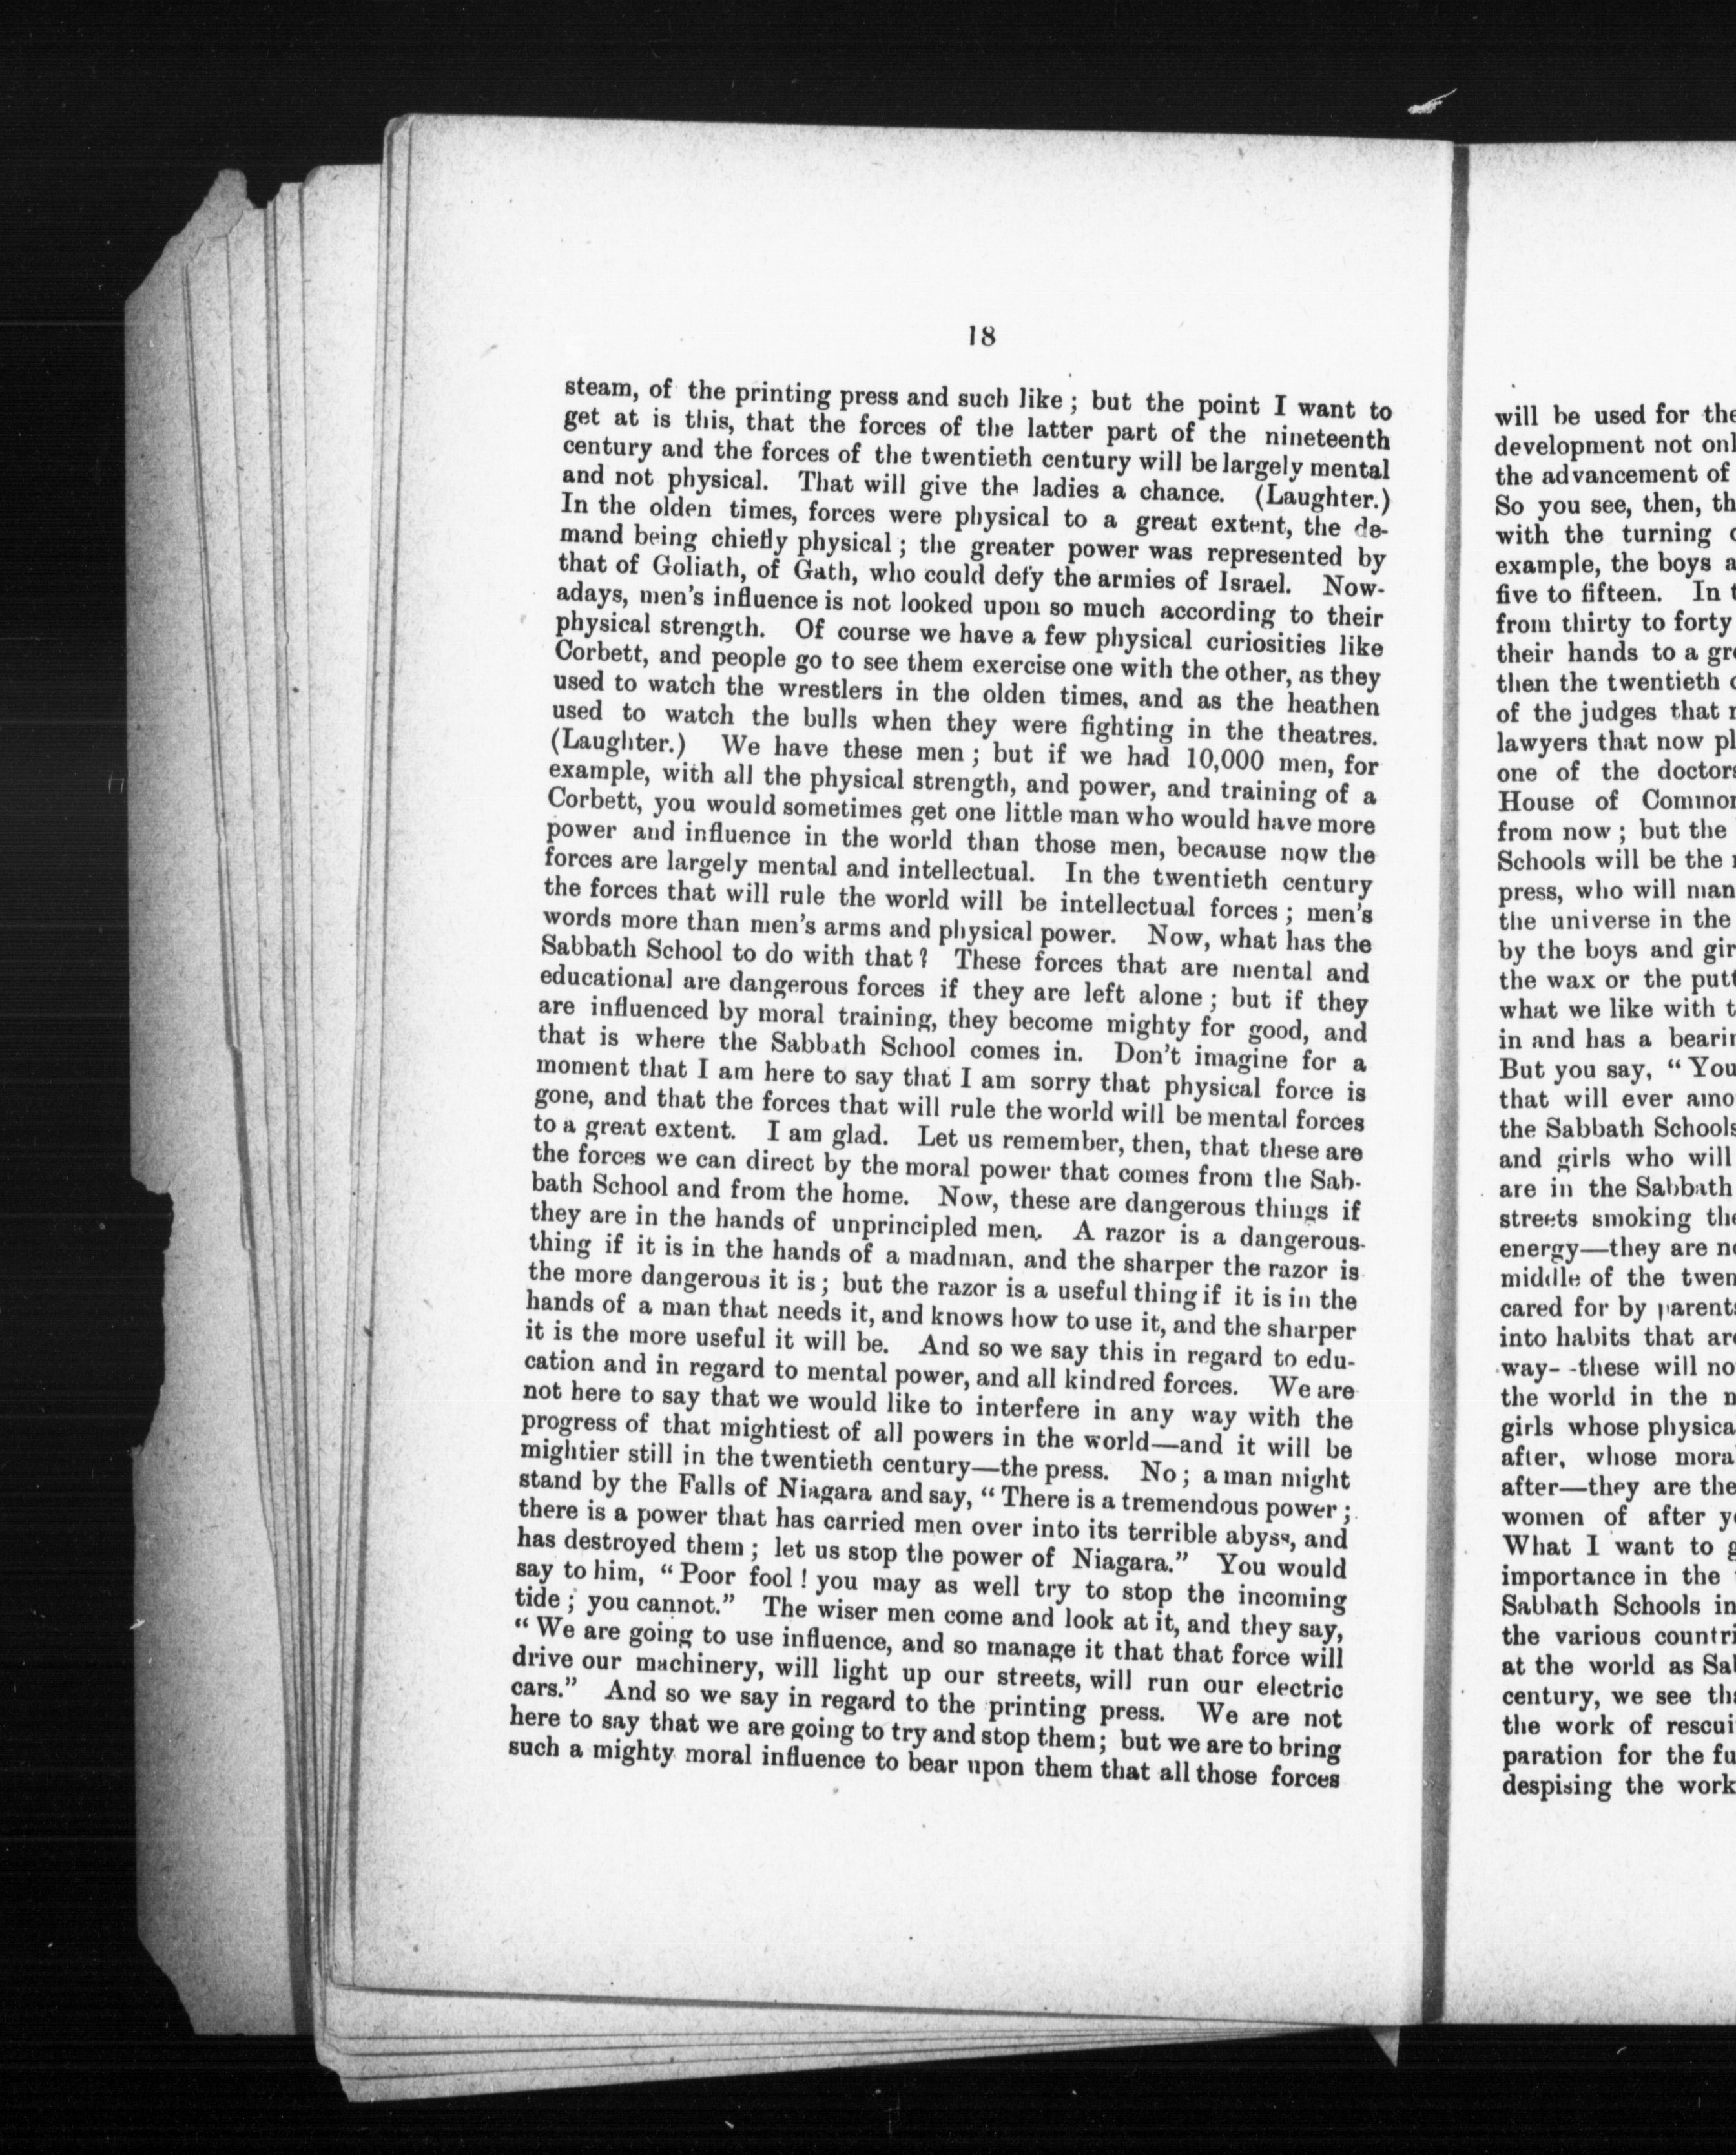 18
steam, of the printing press and such like ; but the point I want to
get at is this, that the forces of the latter part of the nineteenth
century and the forces of the twentieth century will be largely mental
and not physical. That will give the ladies a chance. (Laughter.)
In the olden times, forces were physical to a great extent, the de-
mand being chiefly physical ; the greater power was represented by
that of Goliath, of Gath, who could defy the armies of Israel. Now-
adays, men's influence is not looked upon so much according to their
physical strength. Of course we have a few physical curiosities like
Corbett, and people go to see them exercise one with the other, as they
used to watch the wrestlers in the olden times, and as the heathen
used to watch the bulls when they were fighting in the theatres.
(Laughter.) We have these men ; but if we had 10,000 men, for
example, with all the physical strength, and power, and training of a
Corbett, you would sometimes get one little man who would have more
power and influence in the world than those men, because now the
forces are largely mental and intellectual. In the twentieth century
the forces that will rule the world will be intellectual forces ; men's
words more than men's arms and physical power. Now, what has the
Sabbath School to do with that ? These forces that are mental and
educational are dangerous forces if they are left alone ; but if they
are influenced by moral training, they become mighty for good, and
that is where the Sabbath School comes in. Don't imagine for a
moment that I am here to say that I am sorry that physical force is
gone, and that the forces that will rule the world will be mental forces
to a great extent. I am glad. Let us remember, then, that these are
the forces we can direct by the moral power that comes from the Sab-
bath School and from the home. Now, these are dangerous things if
they are in the hands of unprincipled men. A razor is a dangerous
thing if it is in the hands of a madman, and the sharper the razor is
the more dangerous it is ; but the razor is a useful thing if it is in the
hands of a man that needs it, and knows how to use it, and the sharper
it is the more useful it will be. And so we say this in regard to edu-
cation and in regard to mental power, and all kindred forces. We are
not here to say that we would like to interfere in any way with the
progress of that mightiest of all powers in the world—and it will be
mightier still in the twentieth century—the press. No ; a man might
stand by the Falls of Niagara and say, “ There is a tremendous power ;
there is a power that has carried men over into its terrible abyss, and
has destroyed them ; let us stop the power of Niagara.” You would
say to him, “ Poor fool ! you may as well try to stop the incoming
tide ; you cannot.” The wiser men come and look at it, and they say,
“ We are going to use influence, and so manage it that that force will
drive our machinery, will light up our streets, will run our electric
cars.” And so we say in regard to the printing press. We are not
here to say that we are going to try and stop them ; but we are to bring
such a mighty moral influence to bear upon them that all those forces
will be used for the
development not
the advancement of
So you see, then,
with the turning
example, the boys
five to fifteen. In
from thirty to forty
their hands to a
then the twentieth
of the judges that
lawyers that now
one of the doctors
House of
from now ; but the
Schools will be the
press, who will
the universe in the
by the boys and
the wax or the
what we like with
in and has a
But you say, “ You
that will ever
the Sabbath Schools
and girls who will
are in the Sabbath
streets smoking
energy—they are
middle of the
cared for by
into habits that
way--these will
the world in the
girls whose
after, whose
after—they are
women of after
What I want to
importance in the
Sabbath Schools in
the various
at the world as
century, we see
the work of
paration for the
despising the work